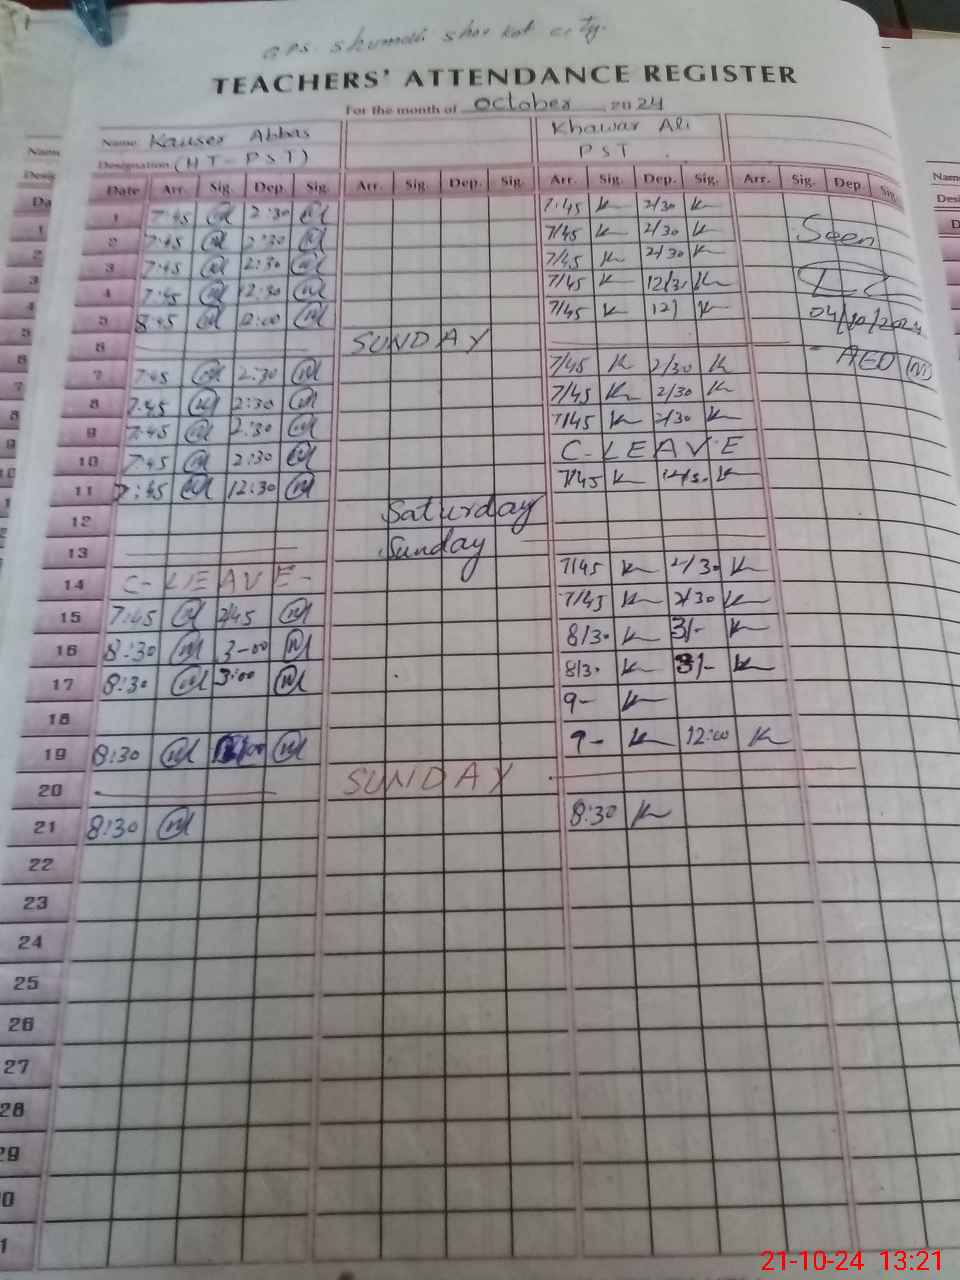 GPS. Shumali Shor Kot city.
TEACHERS' ATTENDANCE REGISTER
For the month of October 2024
Name Kauser Abbas Khawar Ali
Designation (HT-PST) PST
Date Arr. Sig. Dep. Sig. Arr. Sig. Dep. Sig. Arr. Sig. Dep. Sig. Arr. Sig. Dep. Sig.
1 7:45 2:30 7:45 K 2/30 K
2 7:45 2:30 7/45 K 2/30 K Seen
3 7:45 2:30 7/45 K 2/30 K
4 7:45 12:30 7/45 K 12/30 K
5 8:45 12:00 7/45 K 12/ K 04/10/2024
6 SUNDAY AEO (M)
7 7:45 2:30 7/45 K 2/30 K
8 7:45 2:30 7/45 K 2/30 K
9 7:45 2:30 7/45 K 2/30 K
10 7:45 2:30 C-LEAVE
11 7:45 12:30 7/45 K K
12 Saturday
13 Sunday
14 C-LEAVE- 7/45 K 2/30 K
15 7:45 2/45 7/45 K 2/30 K
16 8:30 3-00 8/30 K 3/- K
17 8:30 3:00 8/30 K 3/- K
18 9- K
19 8:30 9- K 12:00 K
20 SUNDAY
21 8:30 8:30 K
22
23
24
25
26
27
28
29
21-10-24 13:21